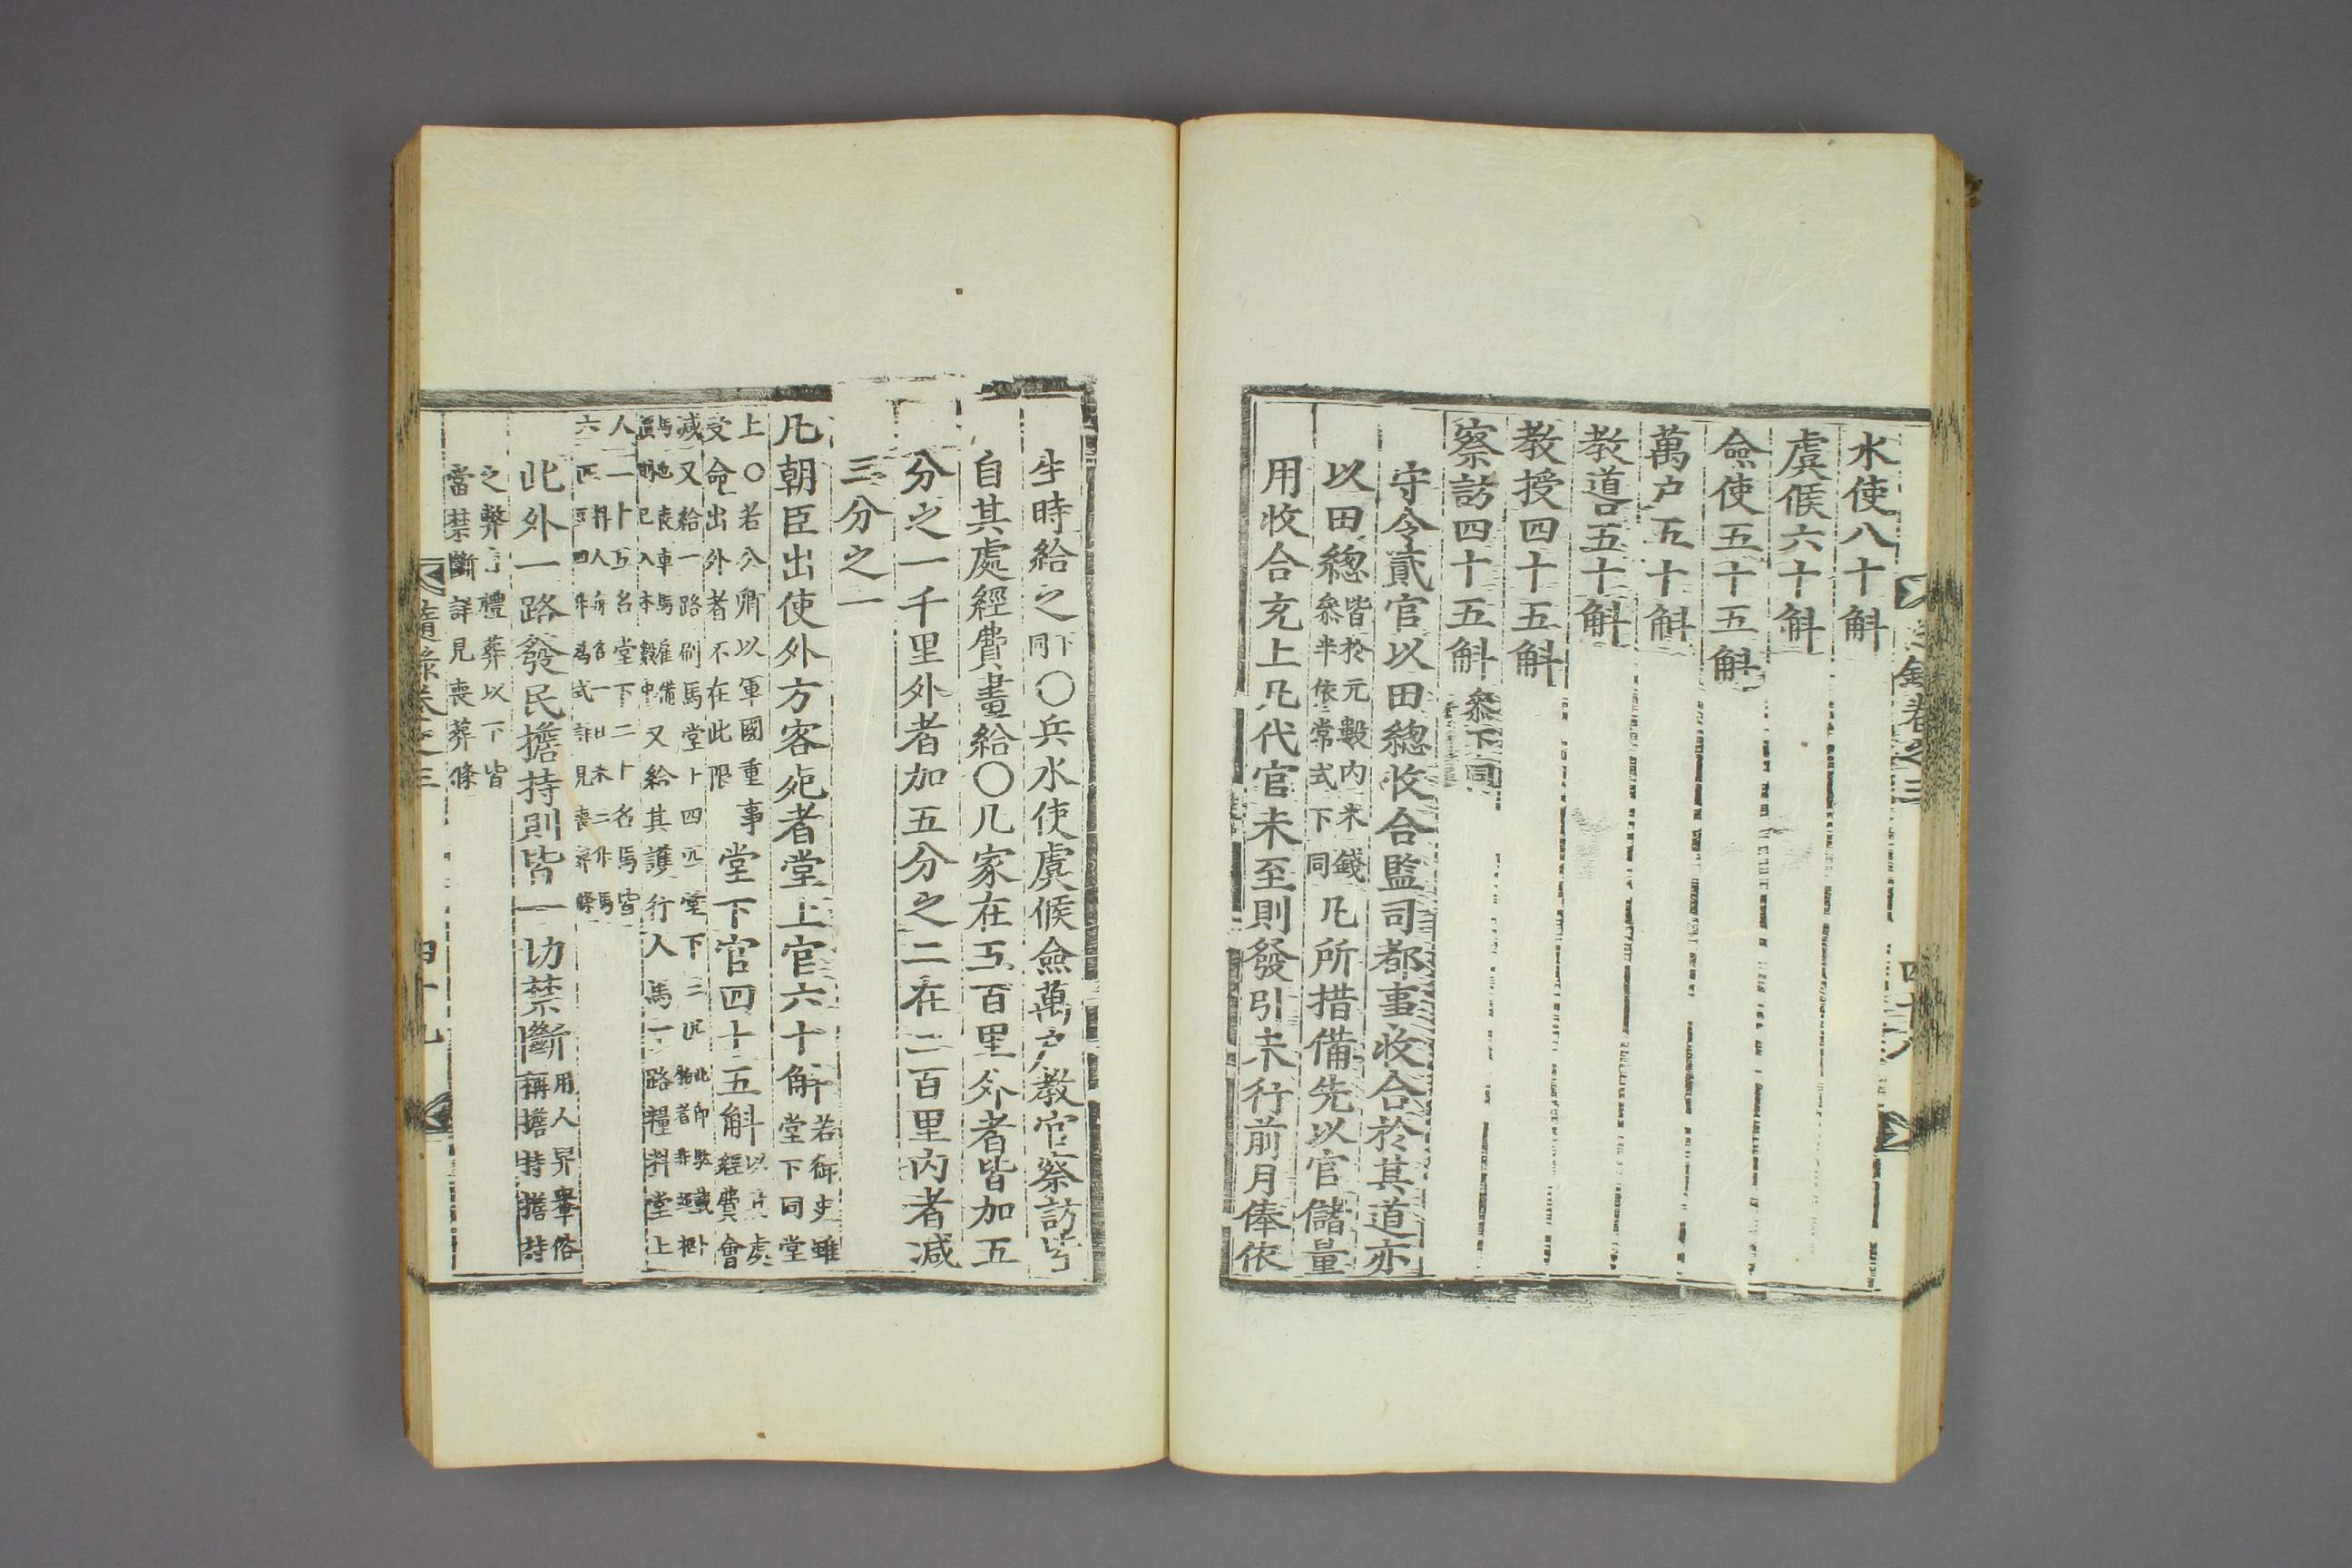 水使八十斛
虞候六十斛
僉使五十五斛
萬户五十斛
教道五十斛
教授四十五斛
察訪四十五斛 叅下同
守令貳官以田緫收合監司都事收合於其道亦
以田緫 皆於元數內米錢
叅半依常式下同 凡所措備先以官儲量
用收合充上凡代官未至則發引未行前月俸依
錄卷之三 四十八
生時給之 下同 〇兵水使虞候僉萬户教官察訪皆
自其處經費畫給〇凡家在五百里外者皆加五
分之一千里外者加五分之二在二百里內者减
三分之一
凡朝臣出使外方客死者堂上官六十斛 若御史雖
堂下同堂
上〇若公卿以軍國重事
受命出外者不在此限 堂下官四十五斛 以其處
經費會
减又給一路刷馬堂上四匹堂下三匹
又給其護行人馬一路糧料堂上
人一十五名堂下二十名馬皆
六匹
此外一路發民擔持則皆一切禁斷 用人舁轝俗
稱擔持擔持
之弊 禮葬以下皆
當禁斷詳見喪葬條
隨錄卷之三 四十九